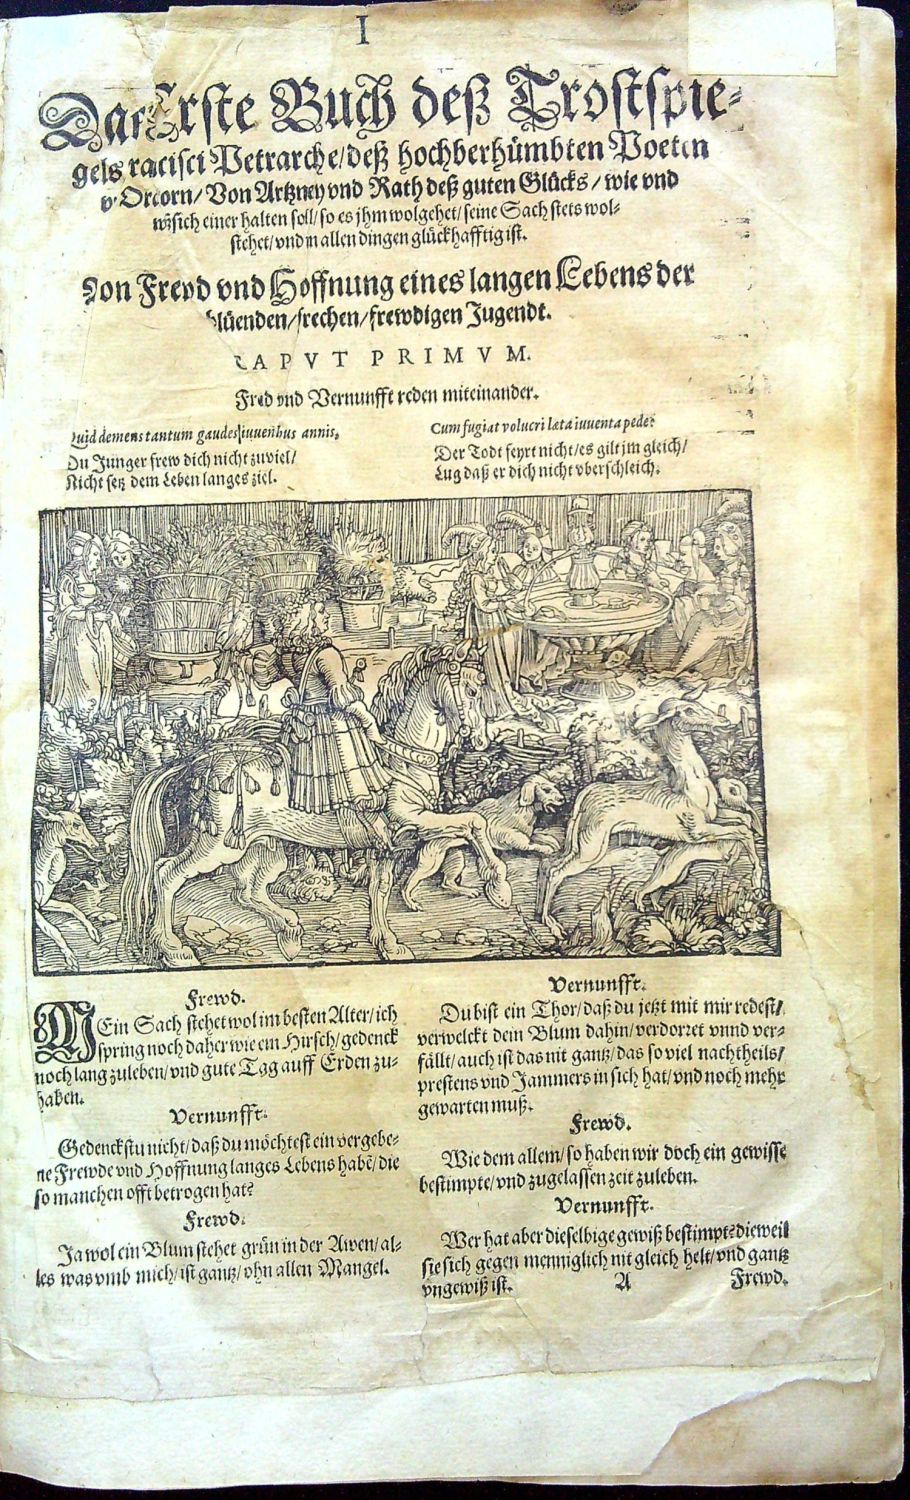 I
Das Erste Buch deß Trostspie-
gels racisci Petrarche/deß hochberhümbten Poeten
Von Artzney vnd Rath deß guten Glücks/wie vnd
sich einer halten soll/so es jhm wolgehet/seine Sach stets wol-
stehet/vnd in allen dingen glückhafftig ist.
Von Frewd vnd Hoffnung eines langen Lebens der
blüenden/frechen/frewdigen Jugendt.
CAPVT PRIMVM.
Frewd vnd Vernunfft reden miteinander.
Quid demens tantum gaudes iuuenibus annis,
Du Junger frew dich nicht zuviel/
Nicht setz dem Leben langes ziel.
Cum fugiat volucri læta iuuenta pede?
Der Todt feyrt nicht/es gilt jm gleich/
Lug daß er dich nicht vberschleich.
Frewd.
MEin Sach stehet wol im besten Alter/ich
spring noch daher wie ein Hirsch/gedenck
noch lang zuleben/vnd gute Tag auff Erden zu-
haben.
Vernunfft.
Gedenckstu nicht/daß du möchtest ein vergebe-
ne Frewde vnd Hoffnung langes Lebens habẽ/die
so manchen offt betrogen hat?
Frewd.
Ja wol ein Blum stehet grün in der Awen/al-
les was vmb mich/ist gantz/ohn allen Mangel.
Vernunfft.
Du bist ein Thor/daß du jetzt mit mir redest/
verwelckt dein Blum dahin/verdorret vnnd ver-
fällt/auch ist das nit gantz/das so viel nachtheils/
prestens vnd Jammers in sich hat/vnd noch mehr
gewarten muß.
Frewd.
Wie dem allem/so haben wir doch ein gewisse
bestimpte/vnd zugelassen zeit zuleben.
Vernunfft.
Wer hat aber dieselbige gewiß bestimpt? dieweil
sie sich gegen menniglich nit gleich helt/vnd gantz
vngewiß ist.
A
Frewd.